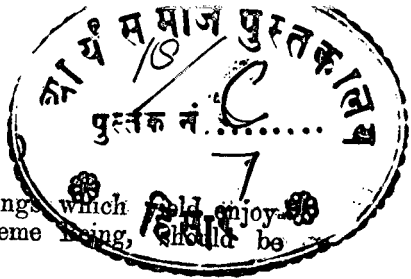 आर्य समाज पुस्तकालय
10
पुस्तक नं.......... C
7
हिसार
ngs which enjoy
eme Being, should be